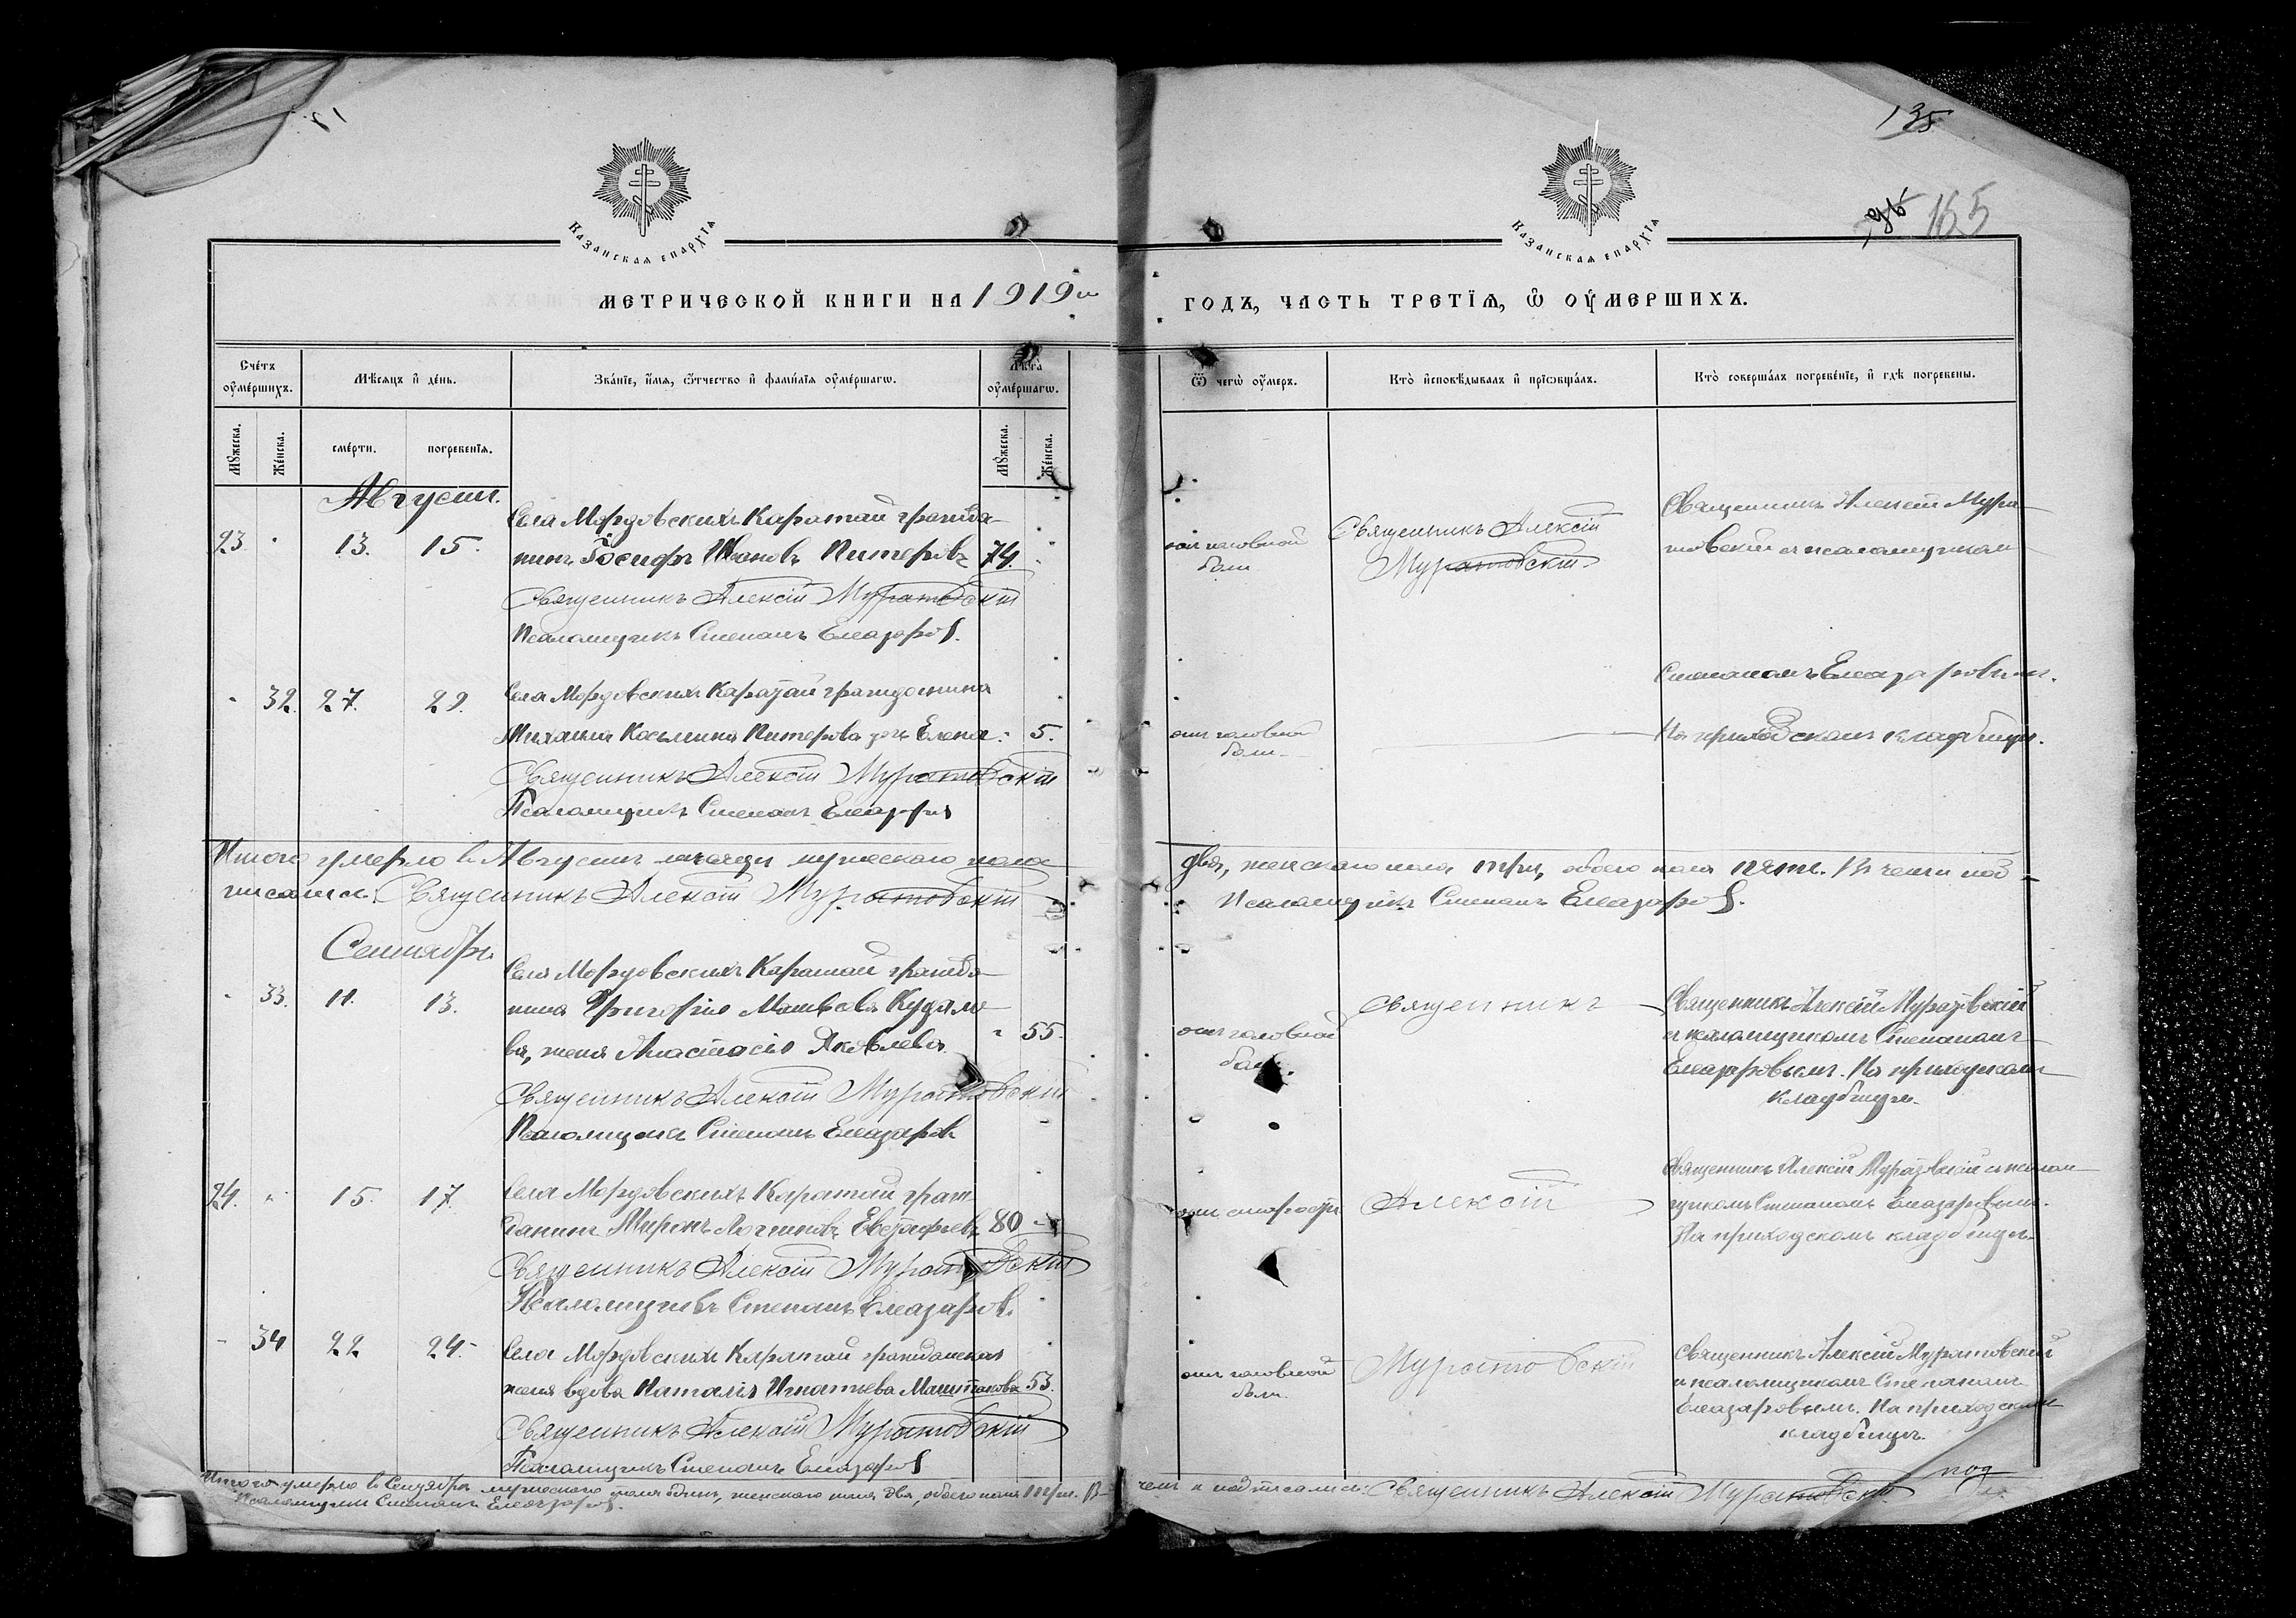 135
165
Казанская епархїя
Казанская епархїя
Метрической книги на 1919 й
годъ, часть третїѧ, ѡ оумершихъ.
Счетъ оумершихъ.
Мѣсяцъ и день.
Званїе, имя, ѡтчество и фамилїя оумершагѡ.
Лѣта оумершагѡ.
Ѿ чегѡ оумеръ.
Кто исповѣдывалъ и прїѡбщалъ.
Кто совершалъ погребенїе, и гдѣ погребены.
Мужеска.
Женска.
смерти.
погребенїя.
Мужеска.
Женска.
Августъ.
23 " 13. 15.
Села Мордовскихъ Каратай гражда-
нинъ Іосифъ Ивановъ Питеровъ 74.
Священникъ Алексій Муратовскій
Псаломщикъ Степанъ Елеазаровъ.
отъ головной
боли
Священникъ Алексій
Муратовскій
Священникъ Алексій Мура-
товскій и псаломщикомъ
Степаномъ Елеазаровымъ.
На приходскомъ кладбищѣ.
" 32. 27. 29.
Села Мордовскихъ Каратай гражданина
Михаила Косьмина Питерова дочь Елена " 5.
Священникъ Алексій Муратовскій
Псаломщикъ Степанъ Елеазаровъ
отъ головной
боли
Итого умерло въ Августѣ мѣсяцѣ мужескаго пола
два, женскаго пола три, обоего пола пять. Въ чемъ под-
писались: Священникъ Алексій Муратовскій
Псаломщикъ Степанъ Елеазаровъ.
Сентябрь
" 33. 11. 13.
Села Мордовскихъ Каратай гражда-
нина Григорія Матвѣева
ва, жена Анастасія Яковлева " 55.
Священникъ Алексій Муратовскій
Псаломщикъ Степанъ Елеазаровъ
отъ головной
боли.
Священникъ
Священникъ Алексій Муратовскій
и псаломщикомъ Степаномъ
Елеазаровымъ. На приходскомъ
кладбищѣ.
24. " 15. 17.
Села Мордовскихъ Каратай граж-
данинъ Миронъ 80 "
Священникъ Алексій Муратовскій
Псаломщикъ Степанъ Елеазаровъ.
отъ старости
Алексій
Священникъ Алексій Муратовскій и псалом-
щикомъ Степаномъ Елеазаровымъ.
На приходскомъ кладбищѣ.
- 34 22 24.
Села Мордовскихъ Каратай гражданская
жена вдова Наталія Игнатьева Маштакова 53.
Священникъ Алексій Муратовскій
Псаломщикъ Степанъ Елеазаровъ
отъ головной
боли.
Муратовскій
Священникъ Алексій Муратовскій
и псаломщикомъ Степаномъ
Елеазаровымъ. На приходскомъ
кладбищѣ.
Итого умерло въ Сентябрѣ мужескаго пола одинъ, женскаго пола два, обоего пола три. В
чемъ и подписались: Священникъ Алексій Муратовскій
Псаломщикъ Степанъ Елеазаровъ.